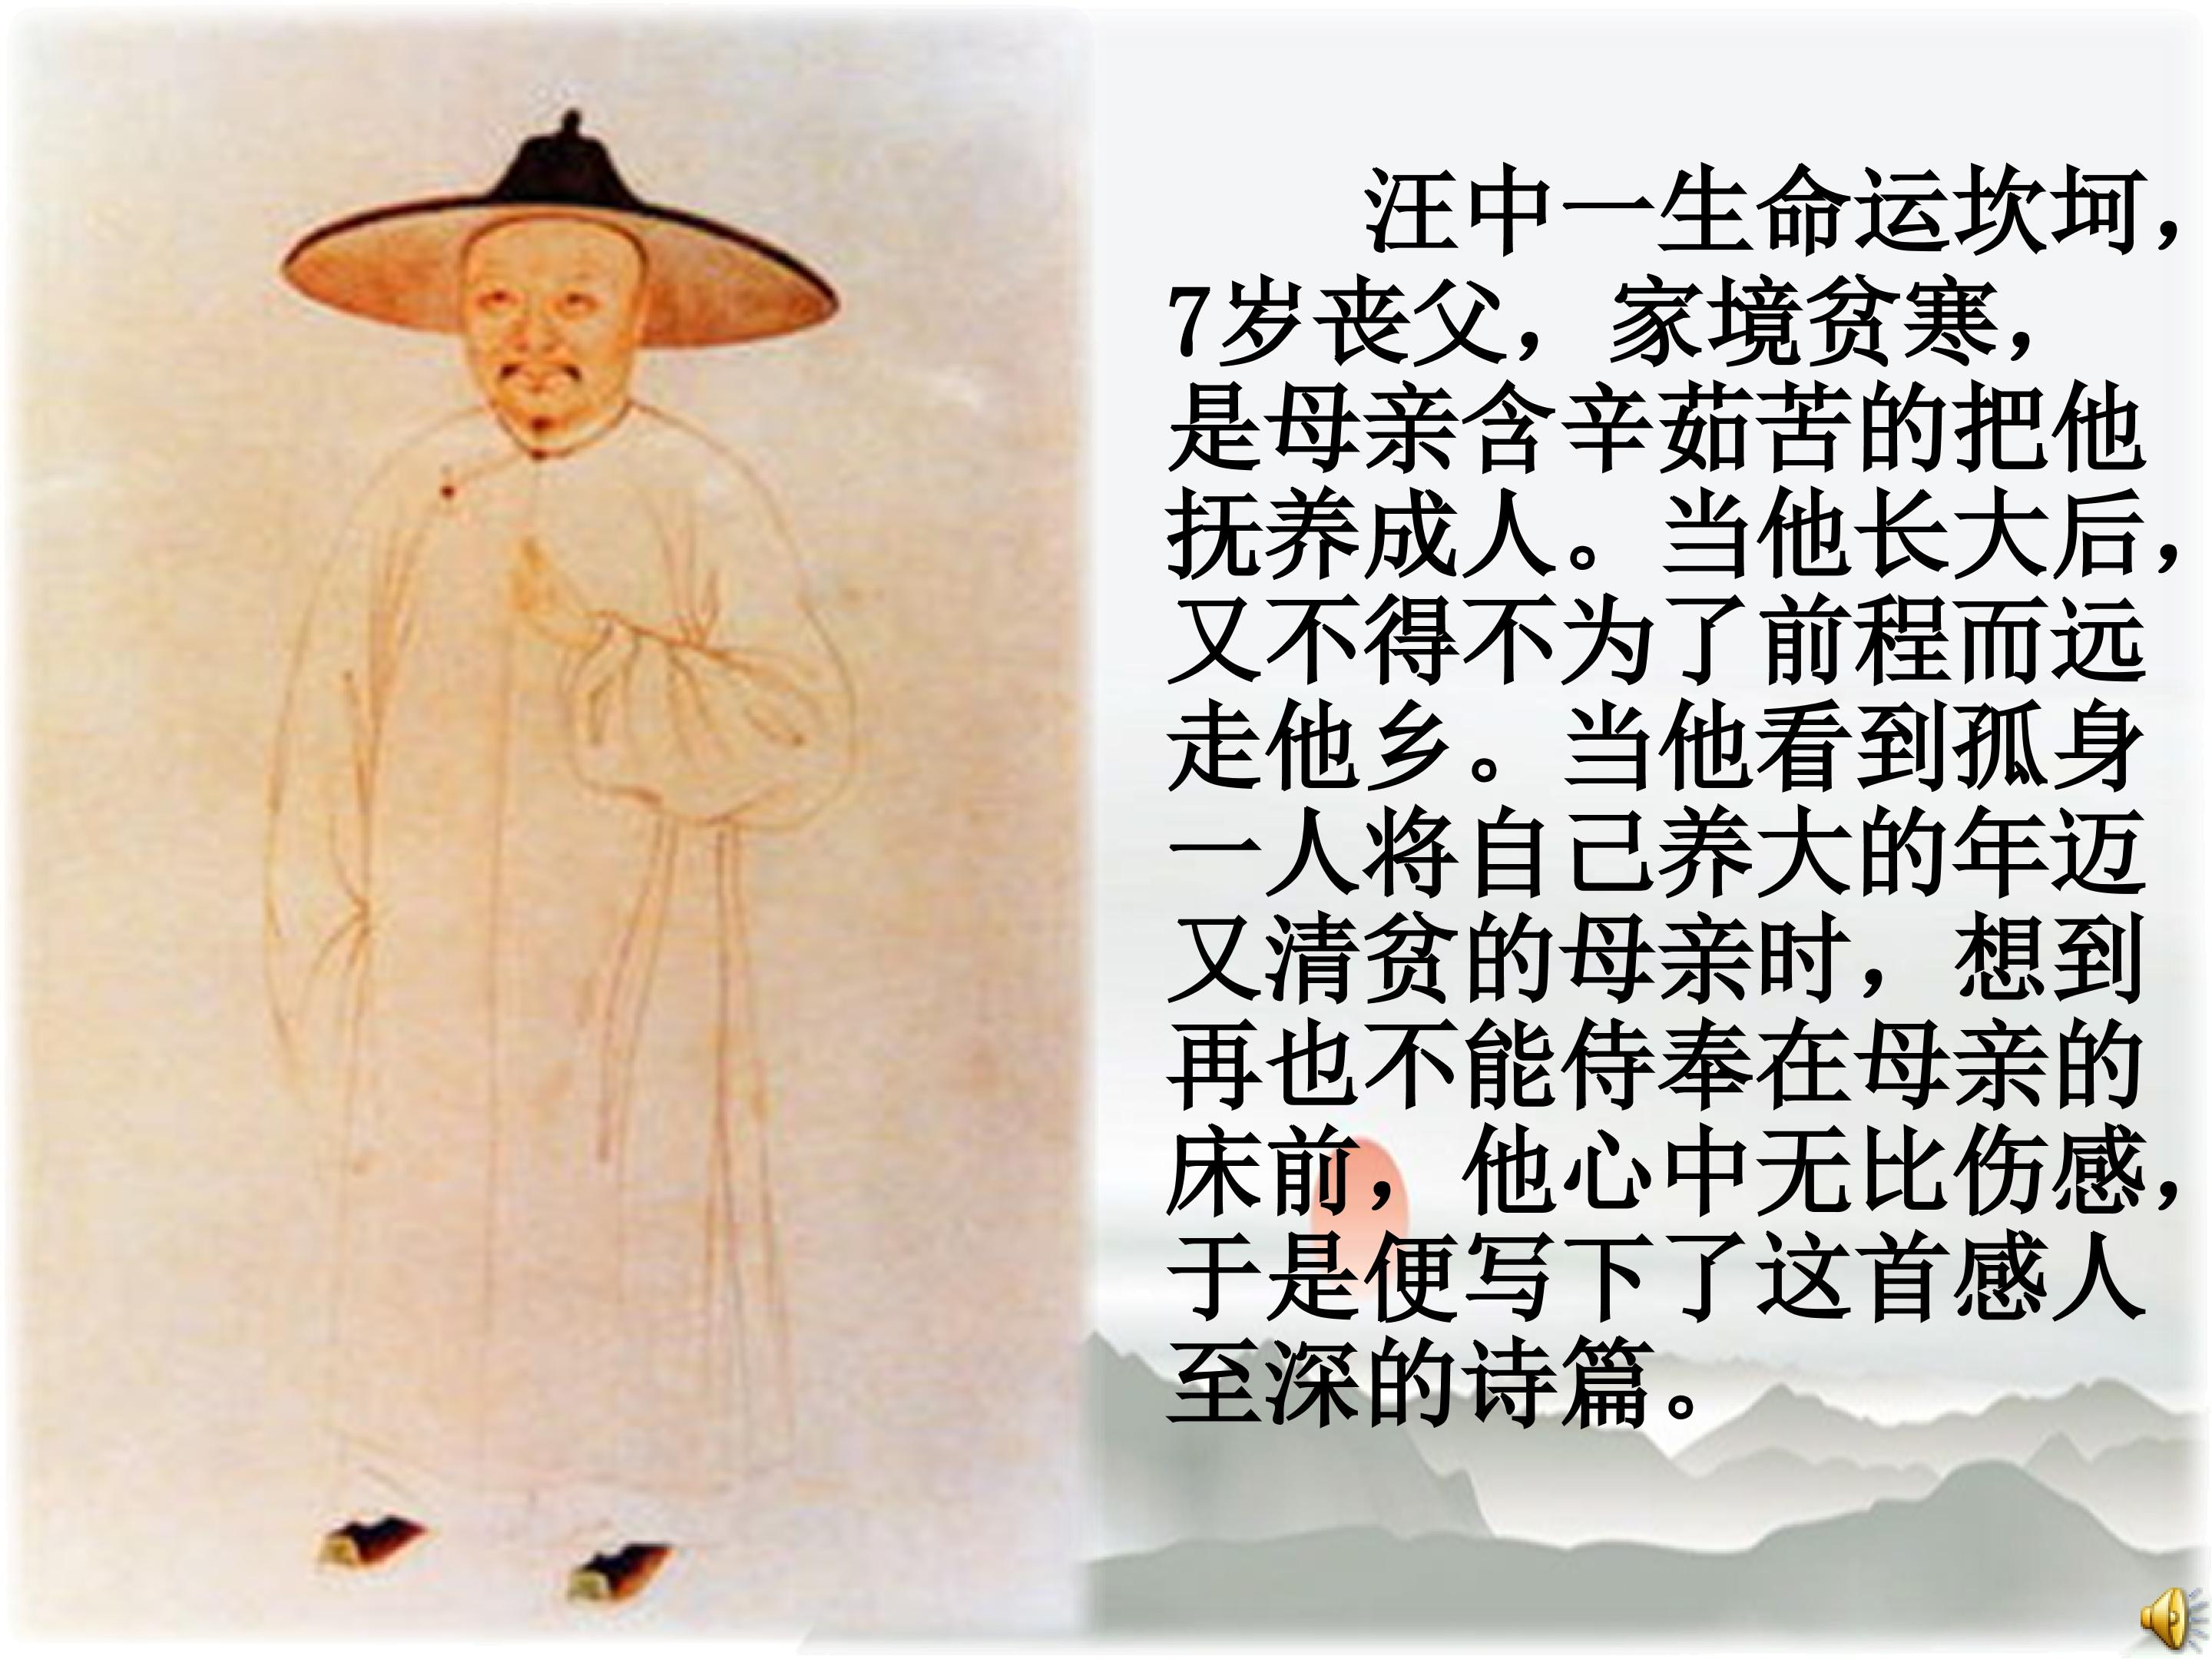 汪中一生命运坎坷，
7岁丧父，家境贫寒，
是母亲含辛茹苦的把他
抚养成人。当他长大后，
又不得不为了前程而远
走他乡。当他看到孤身
一人将自己养大的年迈
又清贫的母亲时，想到
再也不能侍奉在母亲的
床前，他心中无比伤感，
于是便写下了这首感人
至深的诗篇。